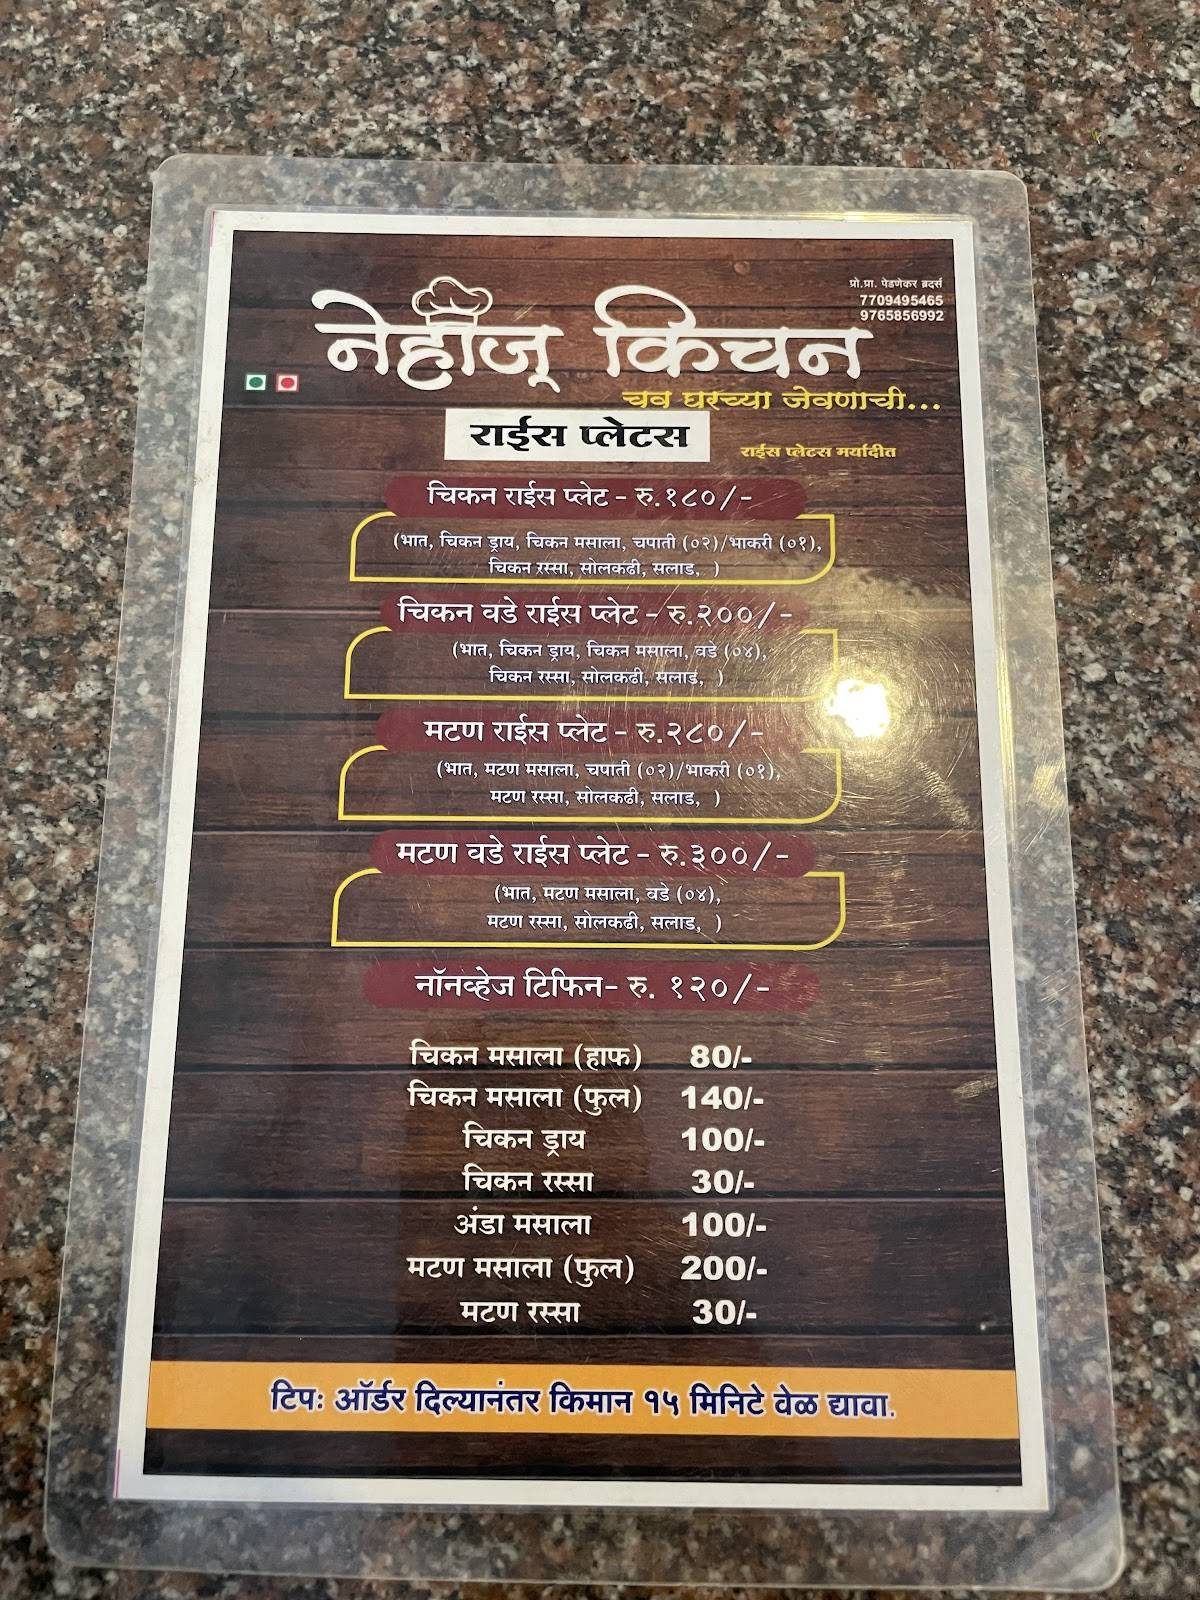 प्रो.प्रा. पेडणेकर ब्रदर्स
7709495465
9765856992
नेहाज् किचन
चव घरच्या जेवणाची...
राईस प्लेटस
राईस प्लेटस मर्यादीत
चिकन राईस प्लेट - रु.१८०/-
(भात, चिकन ड्राय, चिकन मसाला, चपाती (०२)/भाकरी (०१),
चिकन रस्सा, सोलकढी, सलाड, )
चिकन वडे राईस प्लेट - रु.२००/-
(भात, चिकन ड्राय, चिकन मसाला, वडे (०४),
चिकन रस्सा, सोलकढी, सलाड, )
मटण राईस प्लेट - रु.२८०/-
(भात, मटण मसाला, चपाती (०२)/भाकरी (०१),
मटण रस्सा, सोलकढी, सलाड, )
मटण वडे राईस प्लेट - रु.३००/-
(भात, मटण मसाला, वडे (०४),
मटण रस्सा, सोलकढी, सलाड, )
नॉनव्हेज टिफिन- रु. १२०/-
चिकन मसाला (हाफ) 80/-
चिकन मसाला (फुल) 140/-
चिकन ड्राय 100/-
चिकन रस्सा 30/-
अंडा मसाला 100/-
मटण मसाला (फुल) 200/-
मटण रस्सा 30/-
टिपः ऑर्डर दिल्यानंतर किमान १५ मिनिटे वेळ द्यावा.